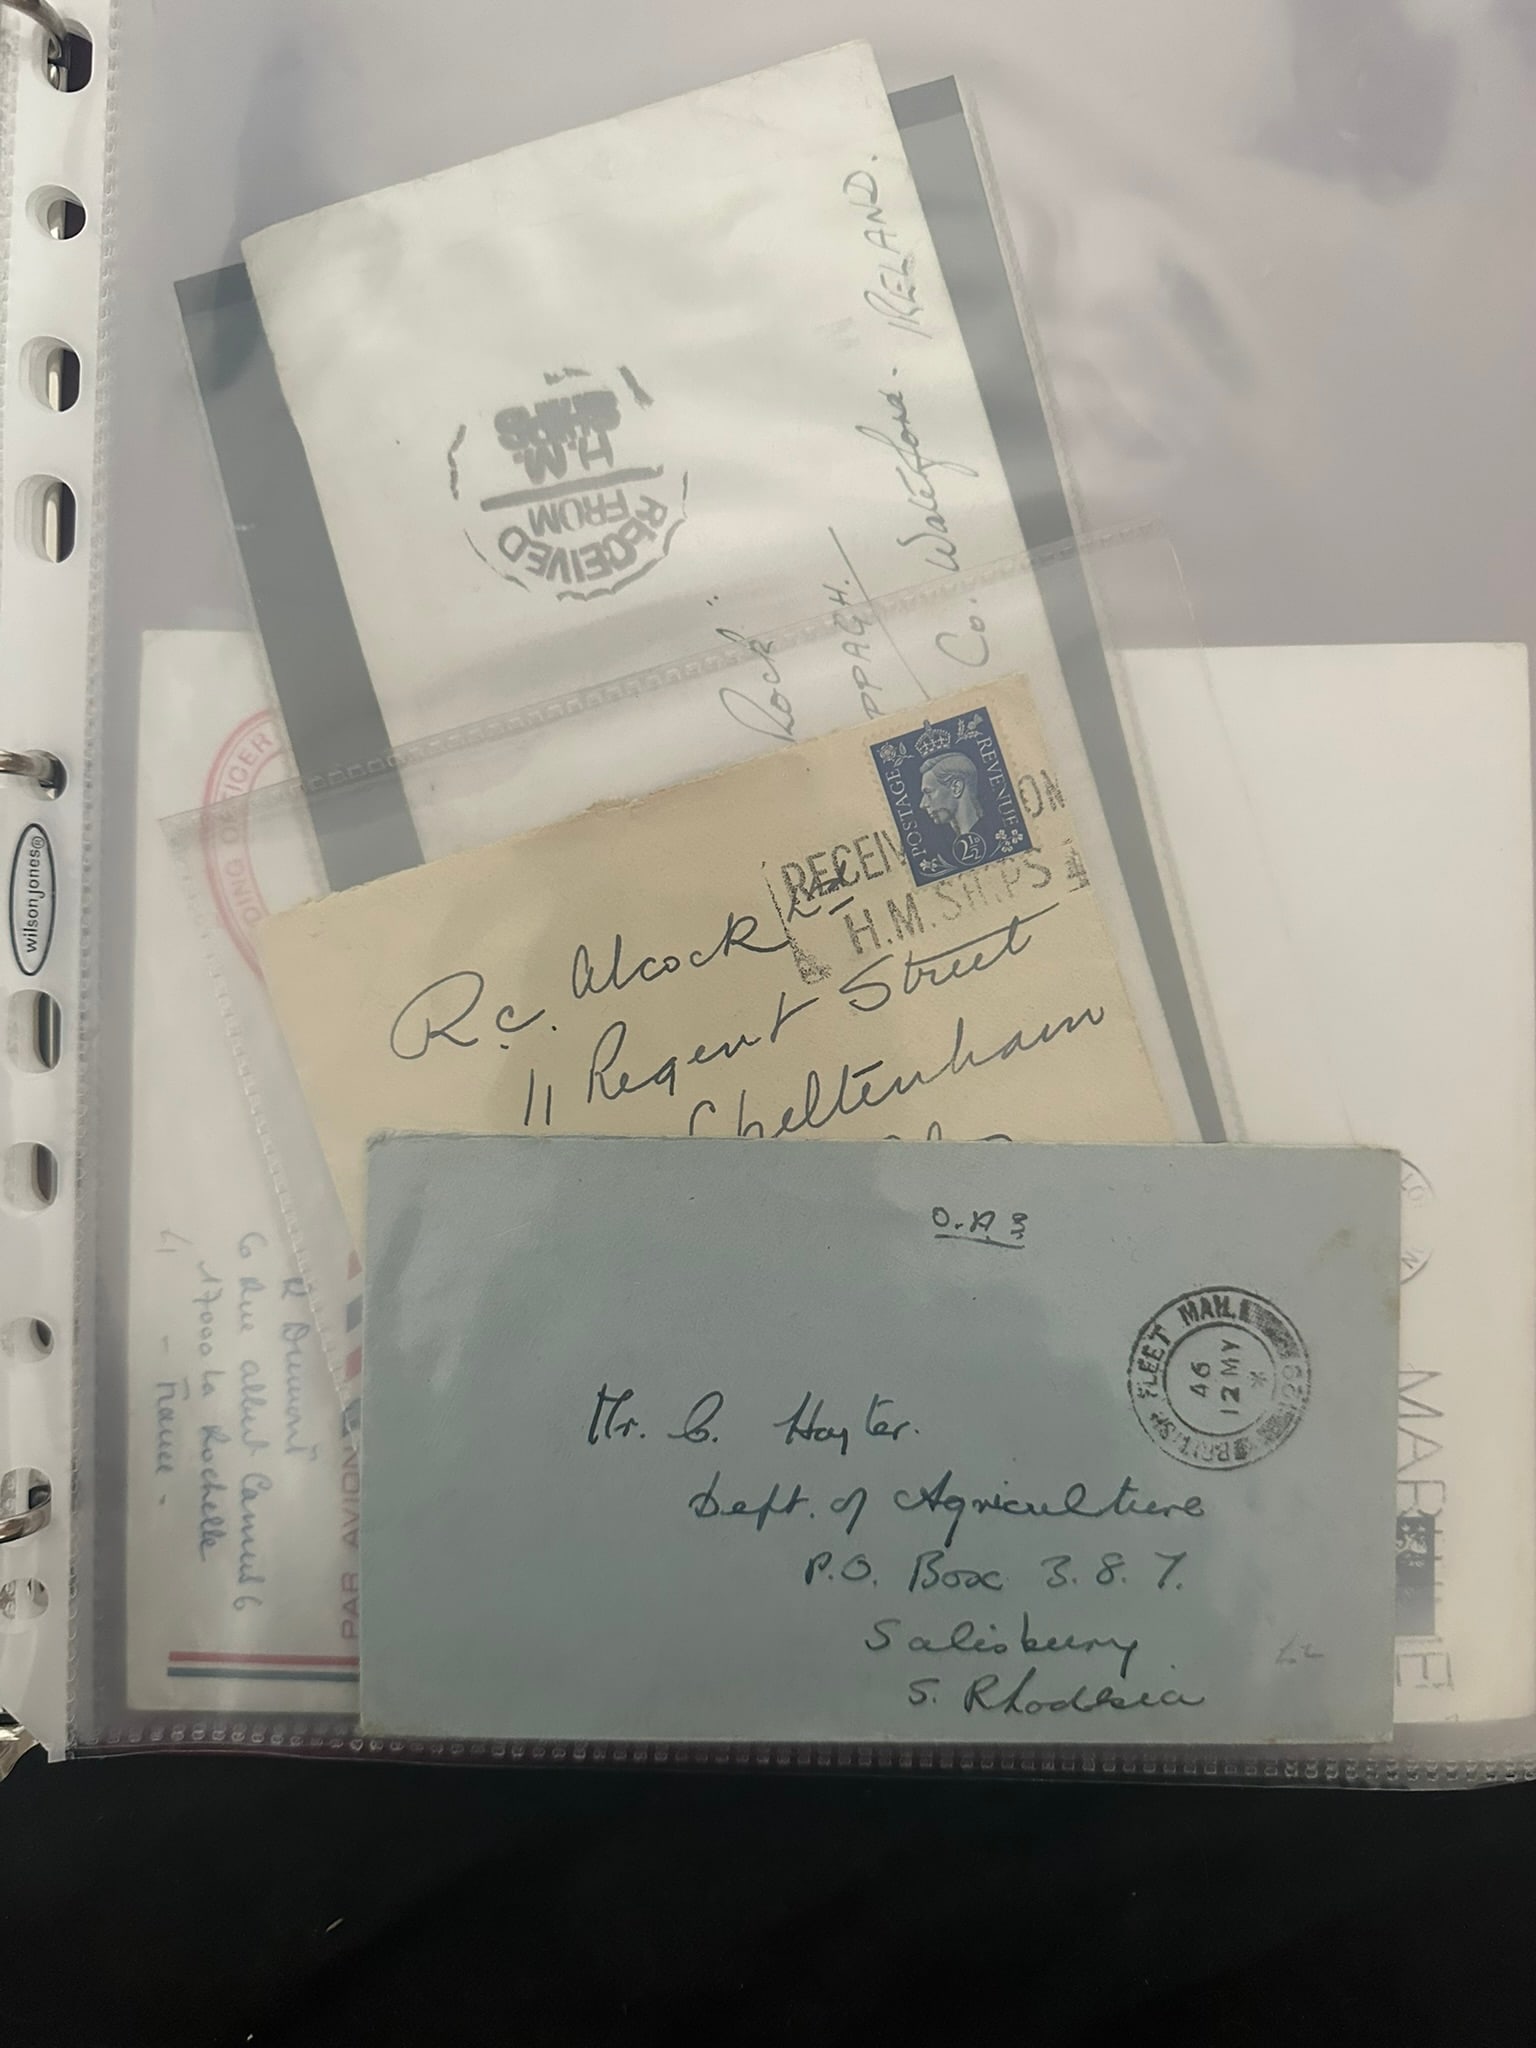 RECEIVED
FROM
H.M.
SHIPS
Rock"
PPAGH.
Co. Waterford. IRELAND.
DING OFFICER
POSTAGE REVENUE
2½D
RECEIV ON
H.M. SHIPS
R.C. Alcock Ltd
11 Regent Street
Cheltenham
wilsonjones®
O.A.S
BRITISH FLEET MAIL
46
12 MY
*
Mr. C. Hayter.
Dept. of Agriculture
P.O. Box 3.8.7.
Salisbury
S. Rhodesia
£2
R Dumont
6 Rue albert Camus
17000 La Rochelle
- France -
PAR AVION
MAR